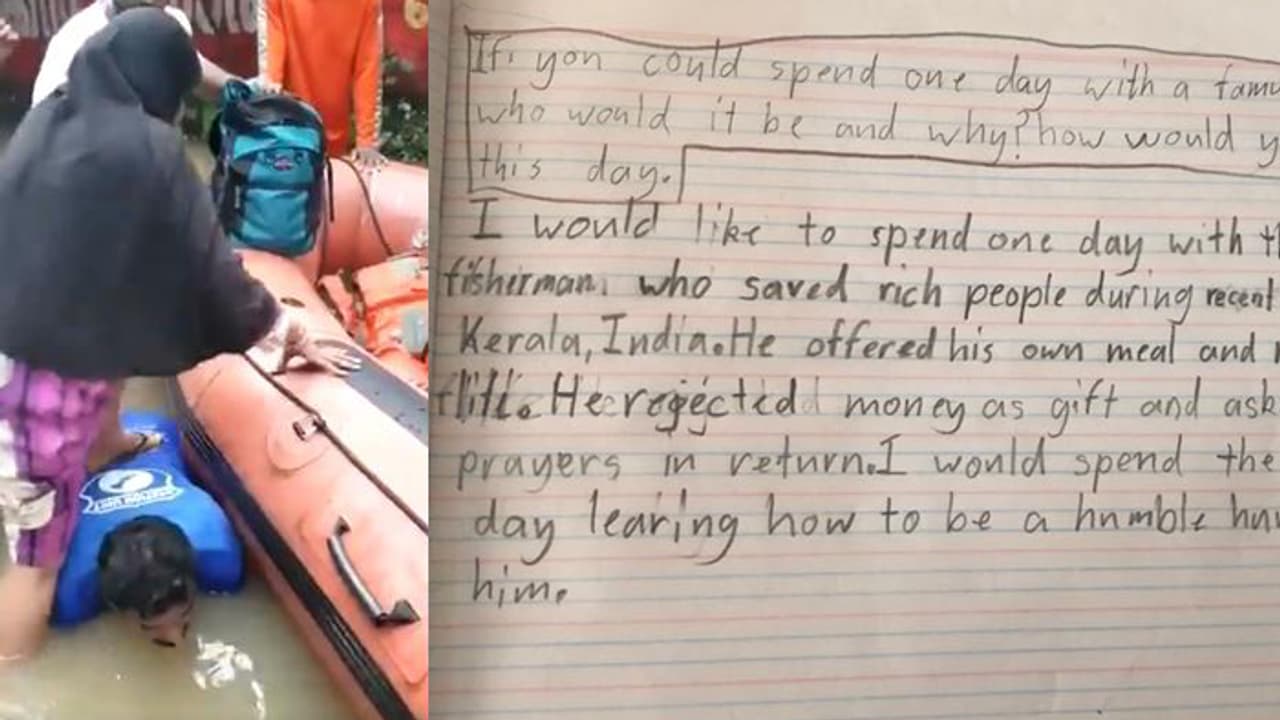 If you could spend one day with a
who would it be and why? how would
this day.
I would like to spend one day with
fisherman who saved rich people during recent
Kerala, India. He offered his own meal and
He regected money as gift and ask
prayers in return. I would spend the
day learing how to be a humble
him.